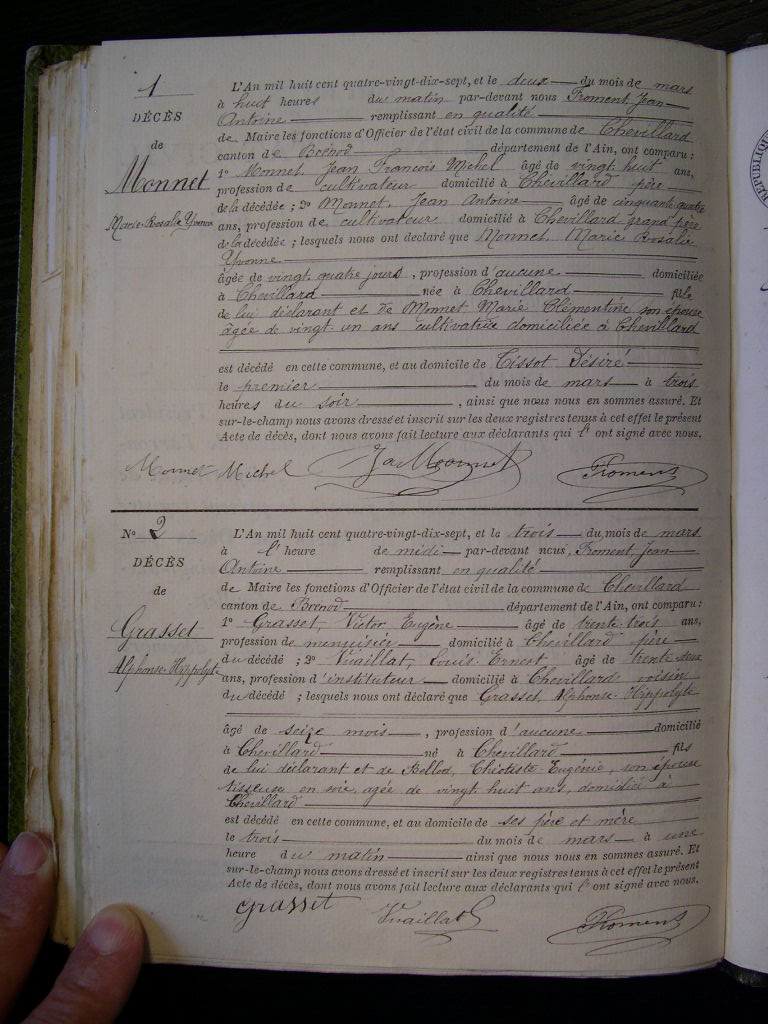 1
DÉCÈS
de
Monnet
Marie Rosalie Yvonne
L'An mil huit cent quatre-vingt-dix-sept, et le deux du mois de mars
à huit heures du matin par-devant nous Froment, Jean
Antoine remplissant en qualité
de Maire les fonctions d'Officier de l'état civil de la commune de Chevillard
canton de Brénod département de l'Ain, ont comparu :
1º Monnet, Jean François Michel âgé de vingt huit ans,
profession de cultivateur domicilié à Chevillard père
de la décédée ; 2º Monnet, Jean Antoine âgé de cinquante quatre
ans, profession de cultivateur domicilié à Chevillard grand père
de la décédée ; lesquels nous ont déclaré que Monnet, Marie Rosalie
Yvonne
âgée de vingt quatre jours, profession d'aucune domiciliée
à Chevillard née à Chevillard fille
de lui déclarant et de Monnet Marie Clémentine son épouse
âgée de vingt un ans cultivatrice domiciliée à Chevillard
est décédé en cette commune, et au domicile de Tissot Désiré
le premier du mois de mars à trois
heures du soir, ainsi que nous nous en sommes assuré. Et
sur-le-champ nous avons dressé et inscrit sur les deux registres tenus à cet effet le présent
Acte de décès, dont nous avons fait lecture aux déclarants qui l' ont signé avec nous.
Monnet Michel Ja Monnet Froment
Nº 2
DÉCÈS
de
Grasset
Alphonse Hippolyte
L'An mil huit cent quatre-vingt-dix-sept, et le trois du mois de mars
à l' heure de midi par-devant nous, Froment, Jean
Antoine remplissant en qualité
de Maire les fonctions d'Officier de l'état civil de la commune de Chevillard
canton de Brénod département de l'Ain, ont comparu :
1º Grasset, Victor Eugène âgé de trente trois ans,
profession de menuisier domicilié à Chevillard père
du décédé ; 2º Vuaillat, Louis Ernest âgé de trente deux
ans, profession d'instituteur domicilié à Chevillard voisin
du décédé ; lesquels nous ont déclaré que Grasset, Alphonse Hippolyte
âgé de seize mois, profession d'aucune domicilié
à Chevillard né à Chevillard fils
de lui déclarant et de Bellod, Eugénie, son épouse
tisseuse en soie, agée de vingt huit ans, domiciliée à
Chevillard
est décédé en cette commune, et au domicile de ses père et mère
le trois du mois de mars à une
heure du matin ainsi que nous nous en sommes assuré. Et
sur-le-champ nous avons dressé et inscrit sur les deux registres tenus à cet effet le présent
Acte de décès, dont nous avons fait lecture aux déclarants qui l' ont signé avec nous.
Grasset Vuaillat Froment